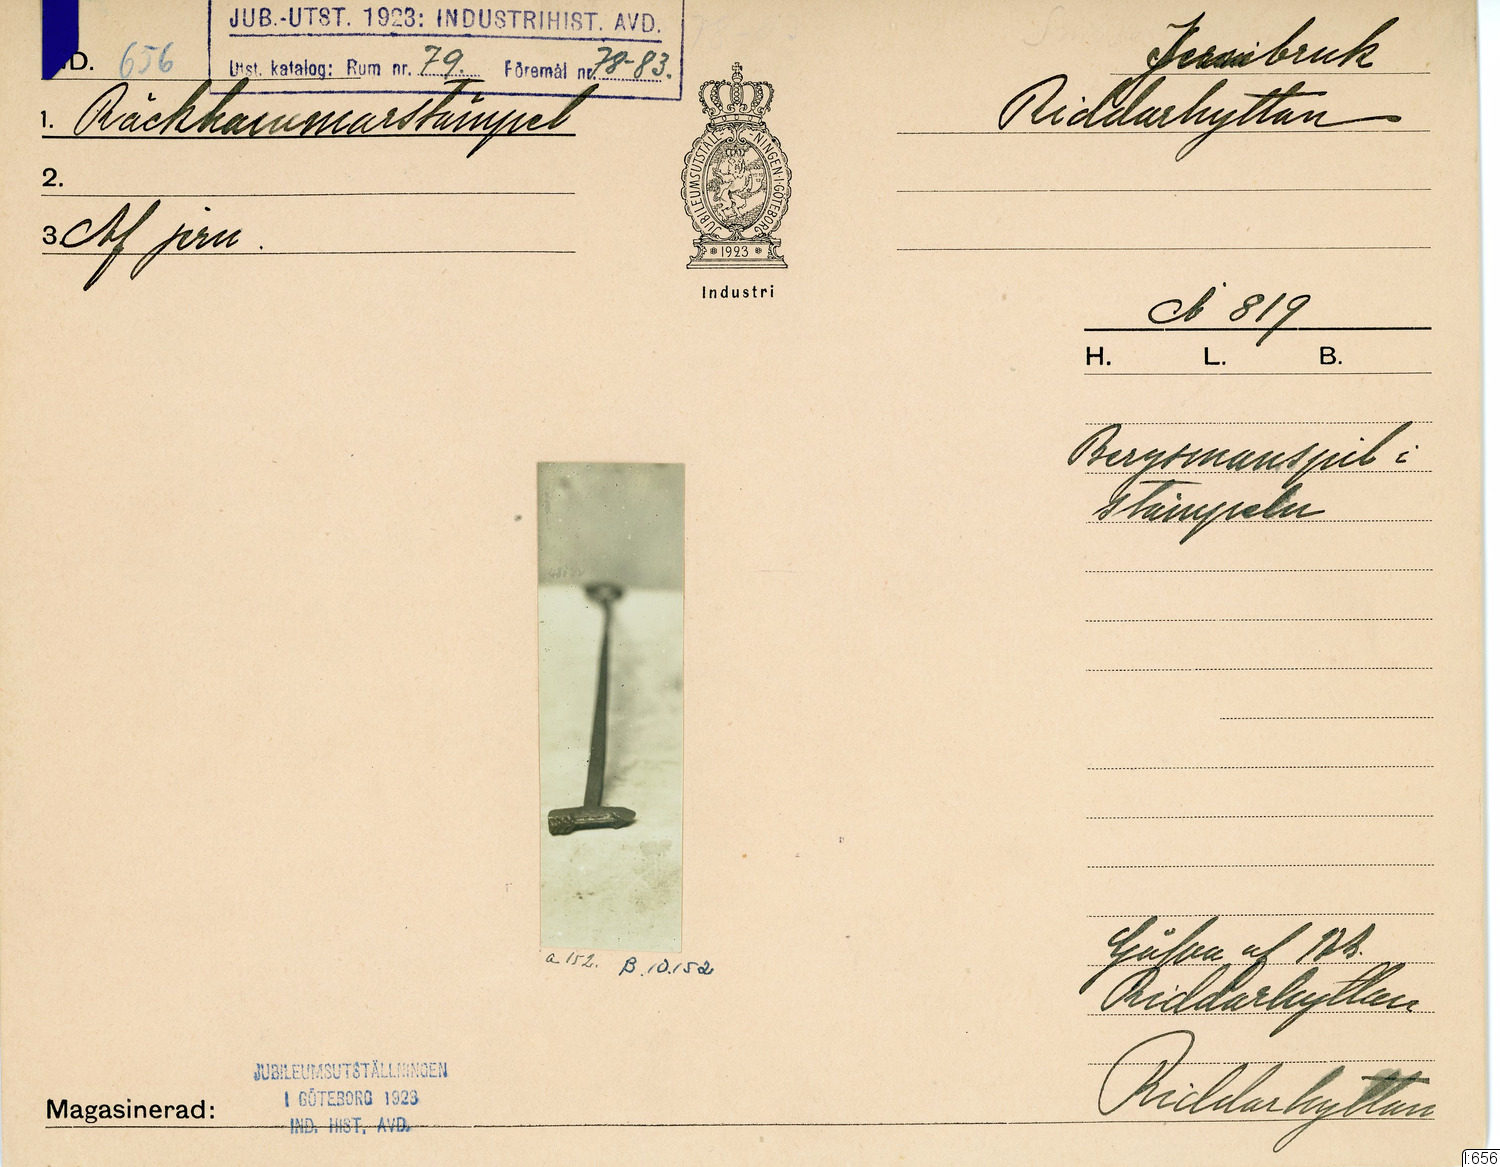 JUB.-UTST. 1923: INDUSTRIHIST. AVD.
Utst. katalog: Rum nr. 79. Föremål nr 78-83.
D. 656
1. Räckhammarstämpel
2.
3. Af jern.
JUBILEUMSUTSTÄLLNINGEN I GÖTEBORG
1923
Industri
Jernbruk
Riddarhyttan
N 819
H. L. B.
Bergsmanspil i
stämpeln
a 152. B.10.152
Gåfva af
Riddarhyttan
Riddarhyttan
JUBILEUMSUTSTÄLLNINGEN
I GÖTEBORG 1923
IND. HIST, AVD.
Magasinerad:
I:656